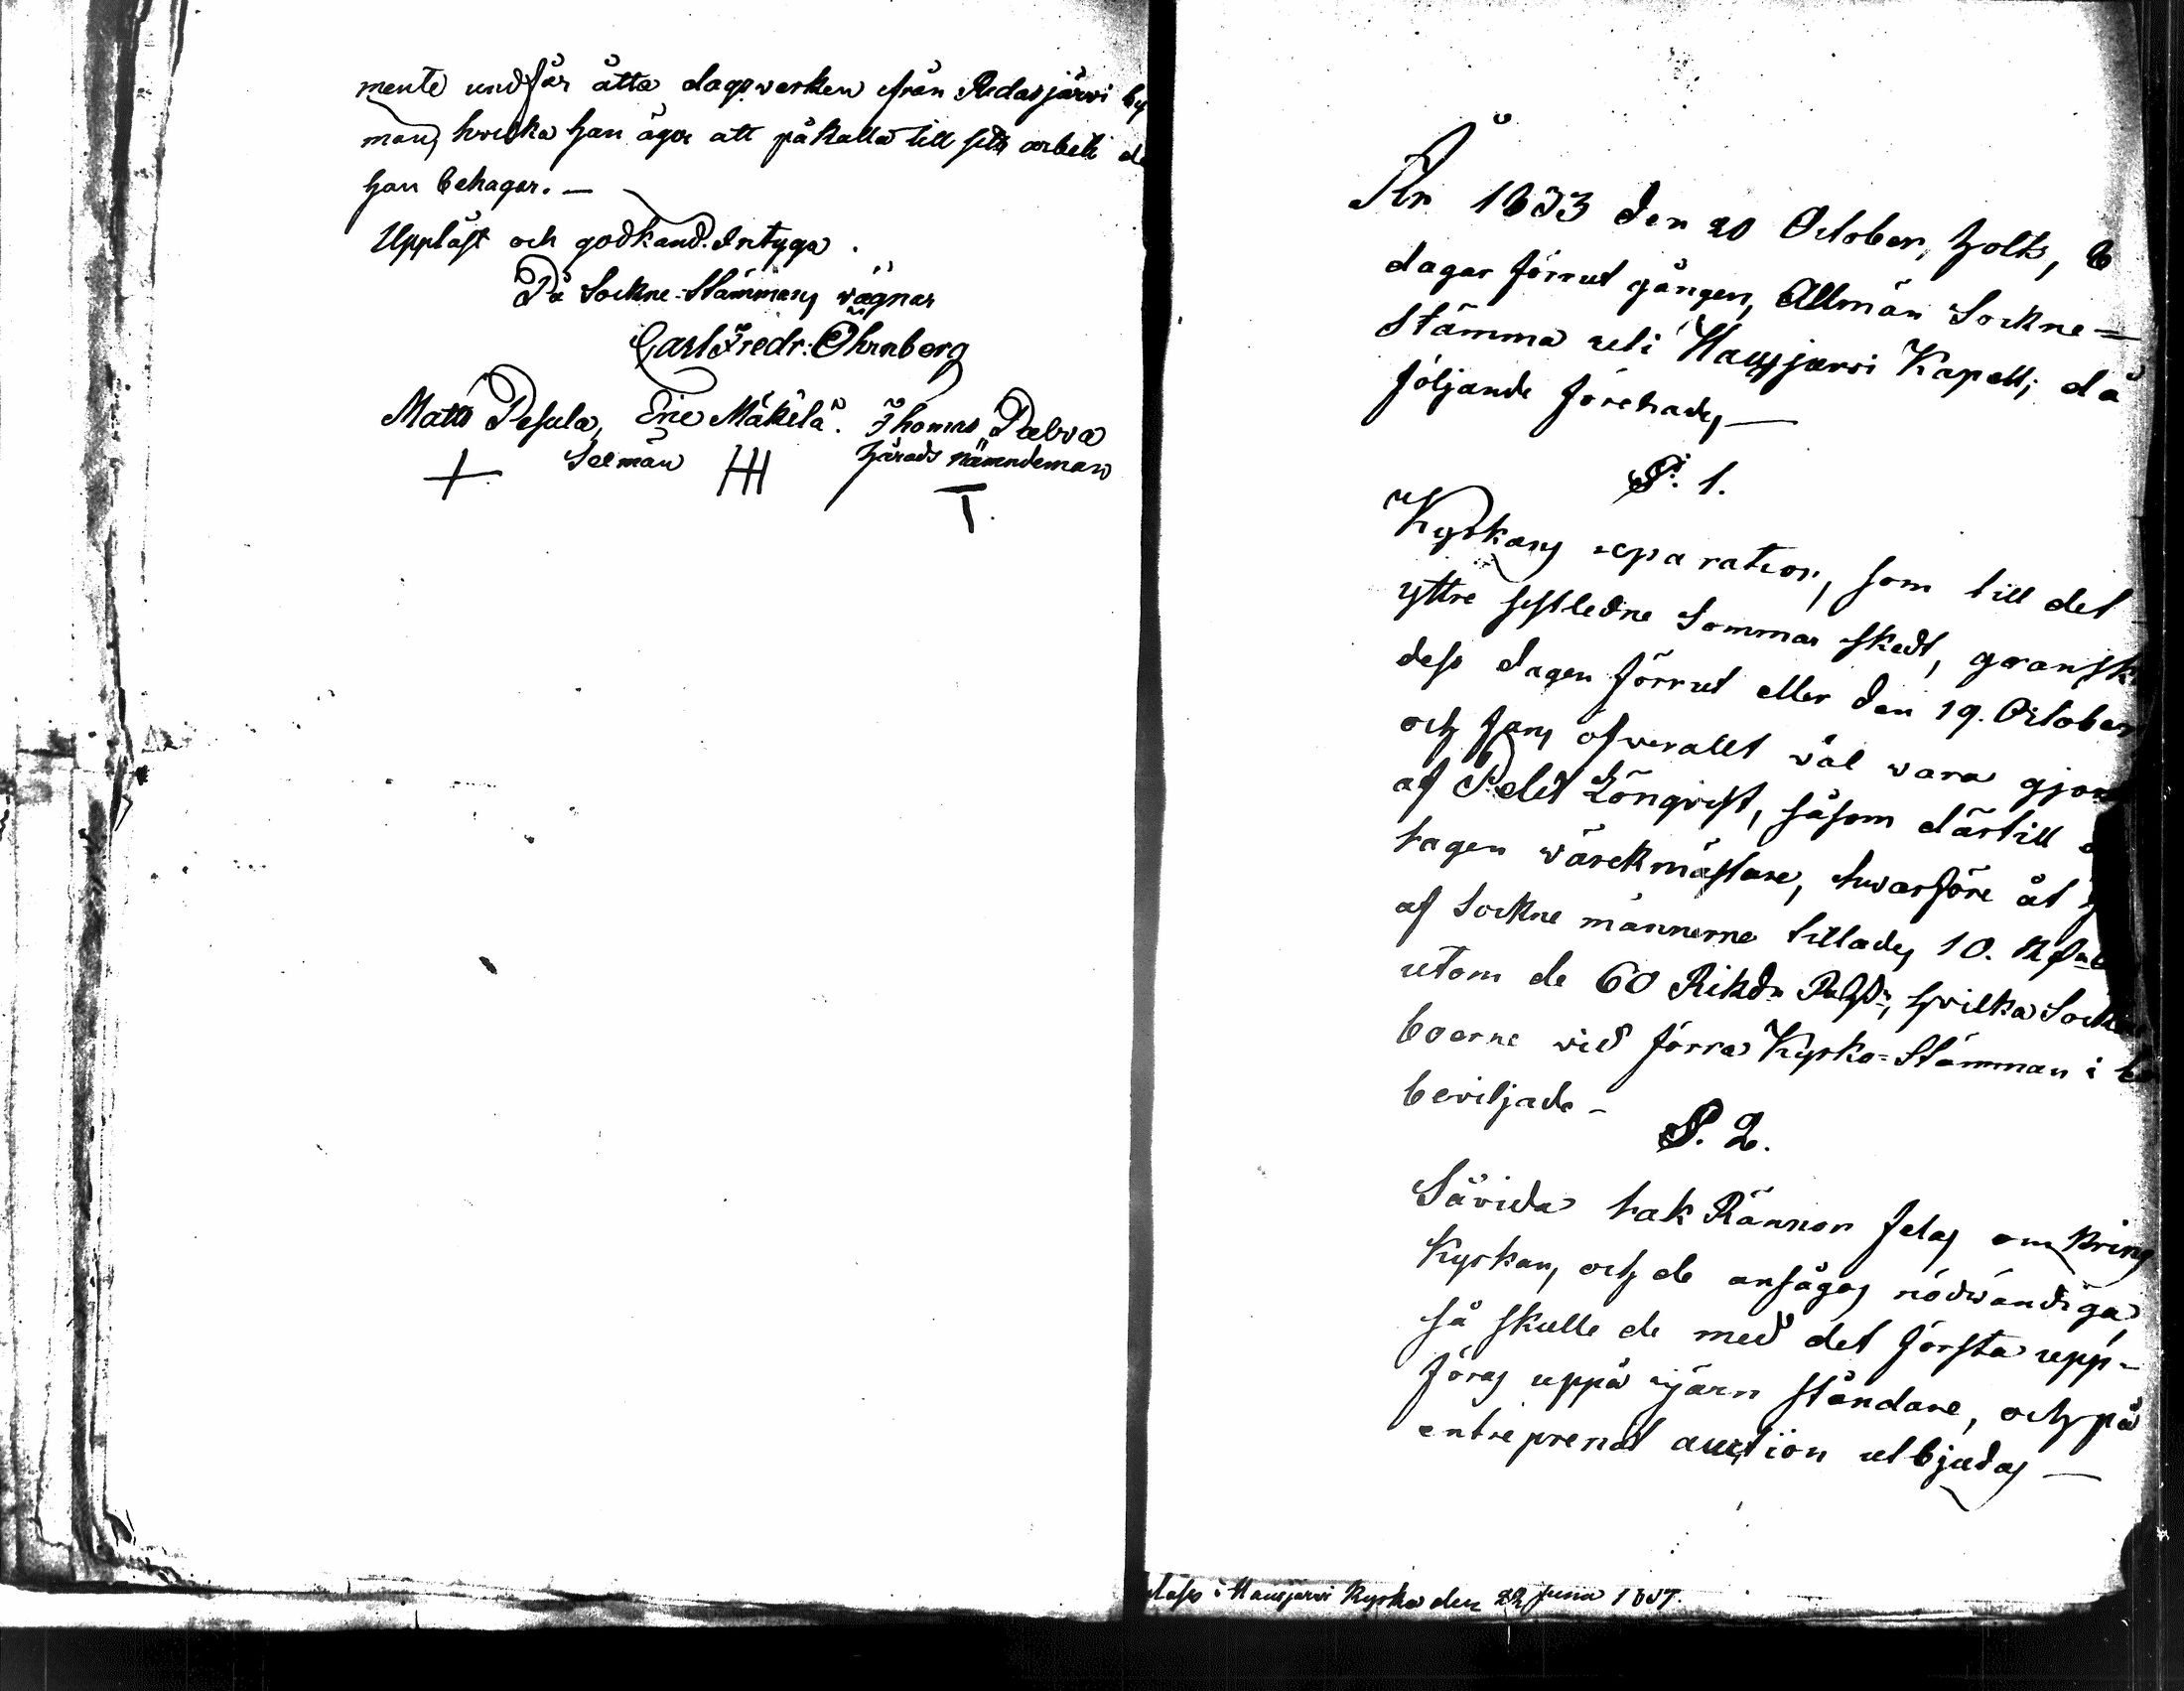 mente undfår åtta dagswerken ifrån Ridasjärvi by
man, hvilka han äger att påkalla till sitt arbete då
han behagar. —
Uppläst och godkänd. Intyga.
På Sockne-Stämmans vägnar
Carl Fredr: Öhrnberg
Matts Pesula, Eric Mäkelä. Thomas Palva
Sexman Härads nämndeman
År 1833 den 20 October, hölts, 8
dagar förrut gången, Allmän Sockne-
Stämma uti Hausjärvi Kapell; då
följande förehades —
§. 1.
Kyrkans reparation, som till det
yttre sistledne Sommar skedt, gransk
dess dagen förrut eller den 19. October,
och fans öfverallt väl vara gjord
af Lönqvist, såsom därtill
tagen värckmästare, hvarföre åt
af Sockne männerne tillades 10. R
utom de 60 Rikdr hvilka Sockne
boerne vid förra Kyrko-Stämman i
beviljade —
§. 2.
Såvida tak Rännor felas omkring
Kyrkan, och de ansågos nödvändiga,
så skulle de med det första upp-
föras uppå järn ständare, och på
entreprenad auction utbjudas —
i Hausjärvi Kyrka den 22 Junii